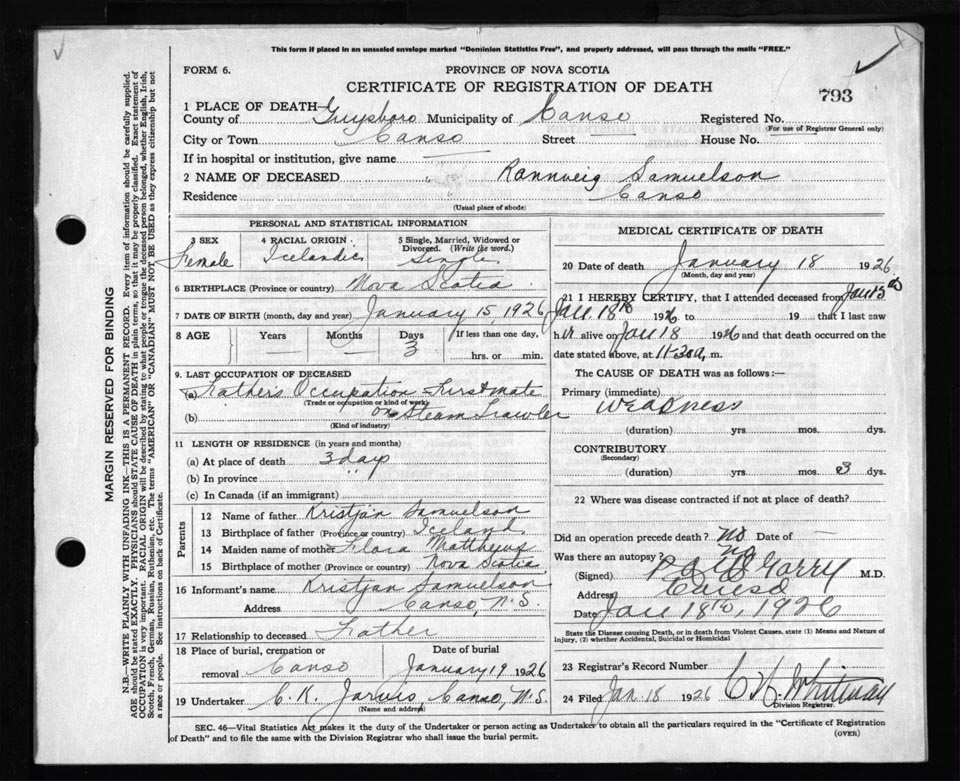 This form if placed in an unsealed envelope marked "Dominion Statistics Free", and properly addressed, will pass through the mails "FREE."
FORM 6.
PROVINCE OF NOVA SCOTIA
CERTIFICATE OF REGISTRATION OF DEATH
793
1 PLACE OF DEATH—
County of Guysboro Municipality of Canso Registered No.
(For use of Registrar General only)
City or Town Canso Street House No.
If in hospital or institution, give name
2 NAME OF DECEASED Rannveig Samuelson
Residence Canso
(Usual place of abode)
PERSONAL AND STATISTICAL INFORMATION
3 SEX
Female
4 RACIAL ORIGIN
Icelandic
5 Single, Married, Widowed or Divorced. (Write the word.)
Single
6 BIRTHPLACE (Province or country) Nova Scotia
7 DATE OF BIRTH (month, day and year) January 15, 1926
8 AGE Years Months Days If less than one day,
3 hrs. or min.
9. LAST OCCUPATION OF DECEASED
(a) Father's Occupation First mate
(Trade or occupation or kind of work)
(b) on Steam Trawler
(Kind of industry)
11 LENGTH OF RESIDENCE (in years and months)
(a) At place of death 3 days
(b) In province " "
(c) In Canada (if an immigrant)
Parents
12 Name of father Kristján Samuelson
13 Birthplace of father (Province or country) Iceland
14 Maiden name of mother Flora Matthews
15 Birthplace of mother (Province or country) Nova Scotia
16 Informant's name Kristjan Samuelson
Address Canso, N.S.
17 Relationship to deceased Father
18 Place of burial, cremation or removal Canso
Date of burial
January 19 1926
19 Undertaker C. K. Jarvis, Canso, N.S.
(Name and address)
MEDICAL CERTIFICATE OF DEATH
20 Date of death January 18 1926
(Month, day and year)
21 I HEREBY CERTIFY, that I attended deceased from Jan 15
Jan. 18th 1926 to 19 that I last saw
her alive on Jan 18 1926 and that death occurred on the
date stated above, at 11.30 a. m.
The CAUSE OF DEATH was as follows:—
Primary (immediate)
Weakness
(duration) yrs mos. dys.
CONTRIBUTORY
(Secondary)
(duration) yrs. mos. 3 dys.
22 Where was disease contracted if not at place of death?
Did an operation precede death? no Date of —
Was there an autopsy? no
(Signed) M.D.
Address Canso
Date Jan 18th, 1926
State the Disease causing Death, or in death from Violent Causes, state (1) Means and Nature of
Injury, (2) whether Accidental, Suicidal or Homicidal
23 Registrar's Record Number
24 Filed Jan. 18 1926 C H Whitman
Division Registrar.
SEC. 46—Vital Statistics Act makes it the duty of the Undertaker or person acting as Undertaker to obtain all the particulars required in the "Certificate of Registration
of Death" and to file the same with the Division Registrar who shall issue the burial permit.
(OVER)
MARGIN RESERVED FOR BINDING
N.B.—WRITE PLAINLY WITH UNFADING INK—THIS IS A PERMANENT RECORD. Every item of information should be carefully supplied.
AGE should be stated EXACTLY. PHYSICIANS should STATE CAUSE OF DEATH in plain terms, so that it may be properly classified. Exact statement of
OCCUPATION is very important. RACIAL ORIGIN will be described by stating to what people or tongue the deceased person belonged, whether English, Irish,
Scotch, French, German, Russian, Ruthenian, etc. The terms "AMERICAN" OR "CANADIAN" MUST NOT BE USED as they express citizenship but not
a race or people. See instructions on back of Certificate.